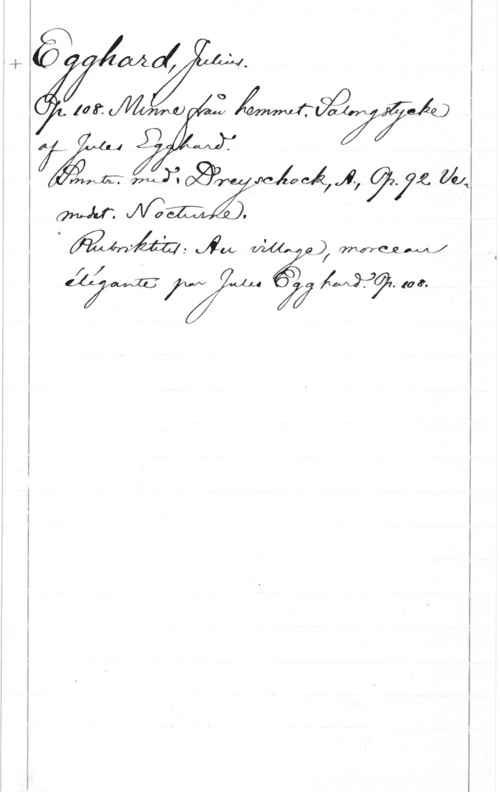 + Egghard, Julius.
Op. 108. Minne från hemmet. Salongstycke
af Jules Egghard.
Smntr. med: Dreyschock, A., Op. 92. Ve-
modet. Nocturne.
Rubriktitel: Au village, morceau
élégante par Jules Egghard. Op. 108.